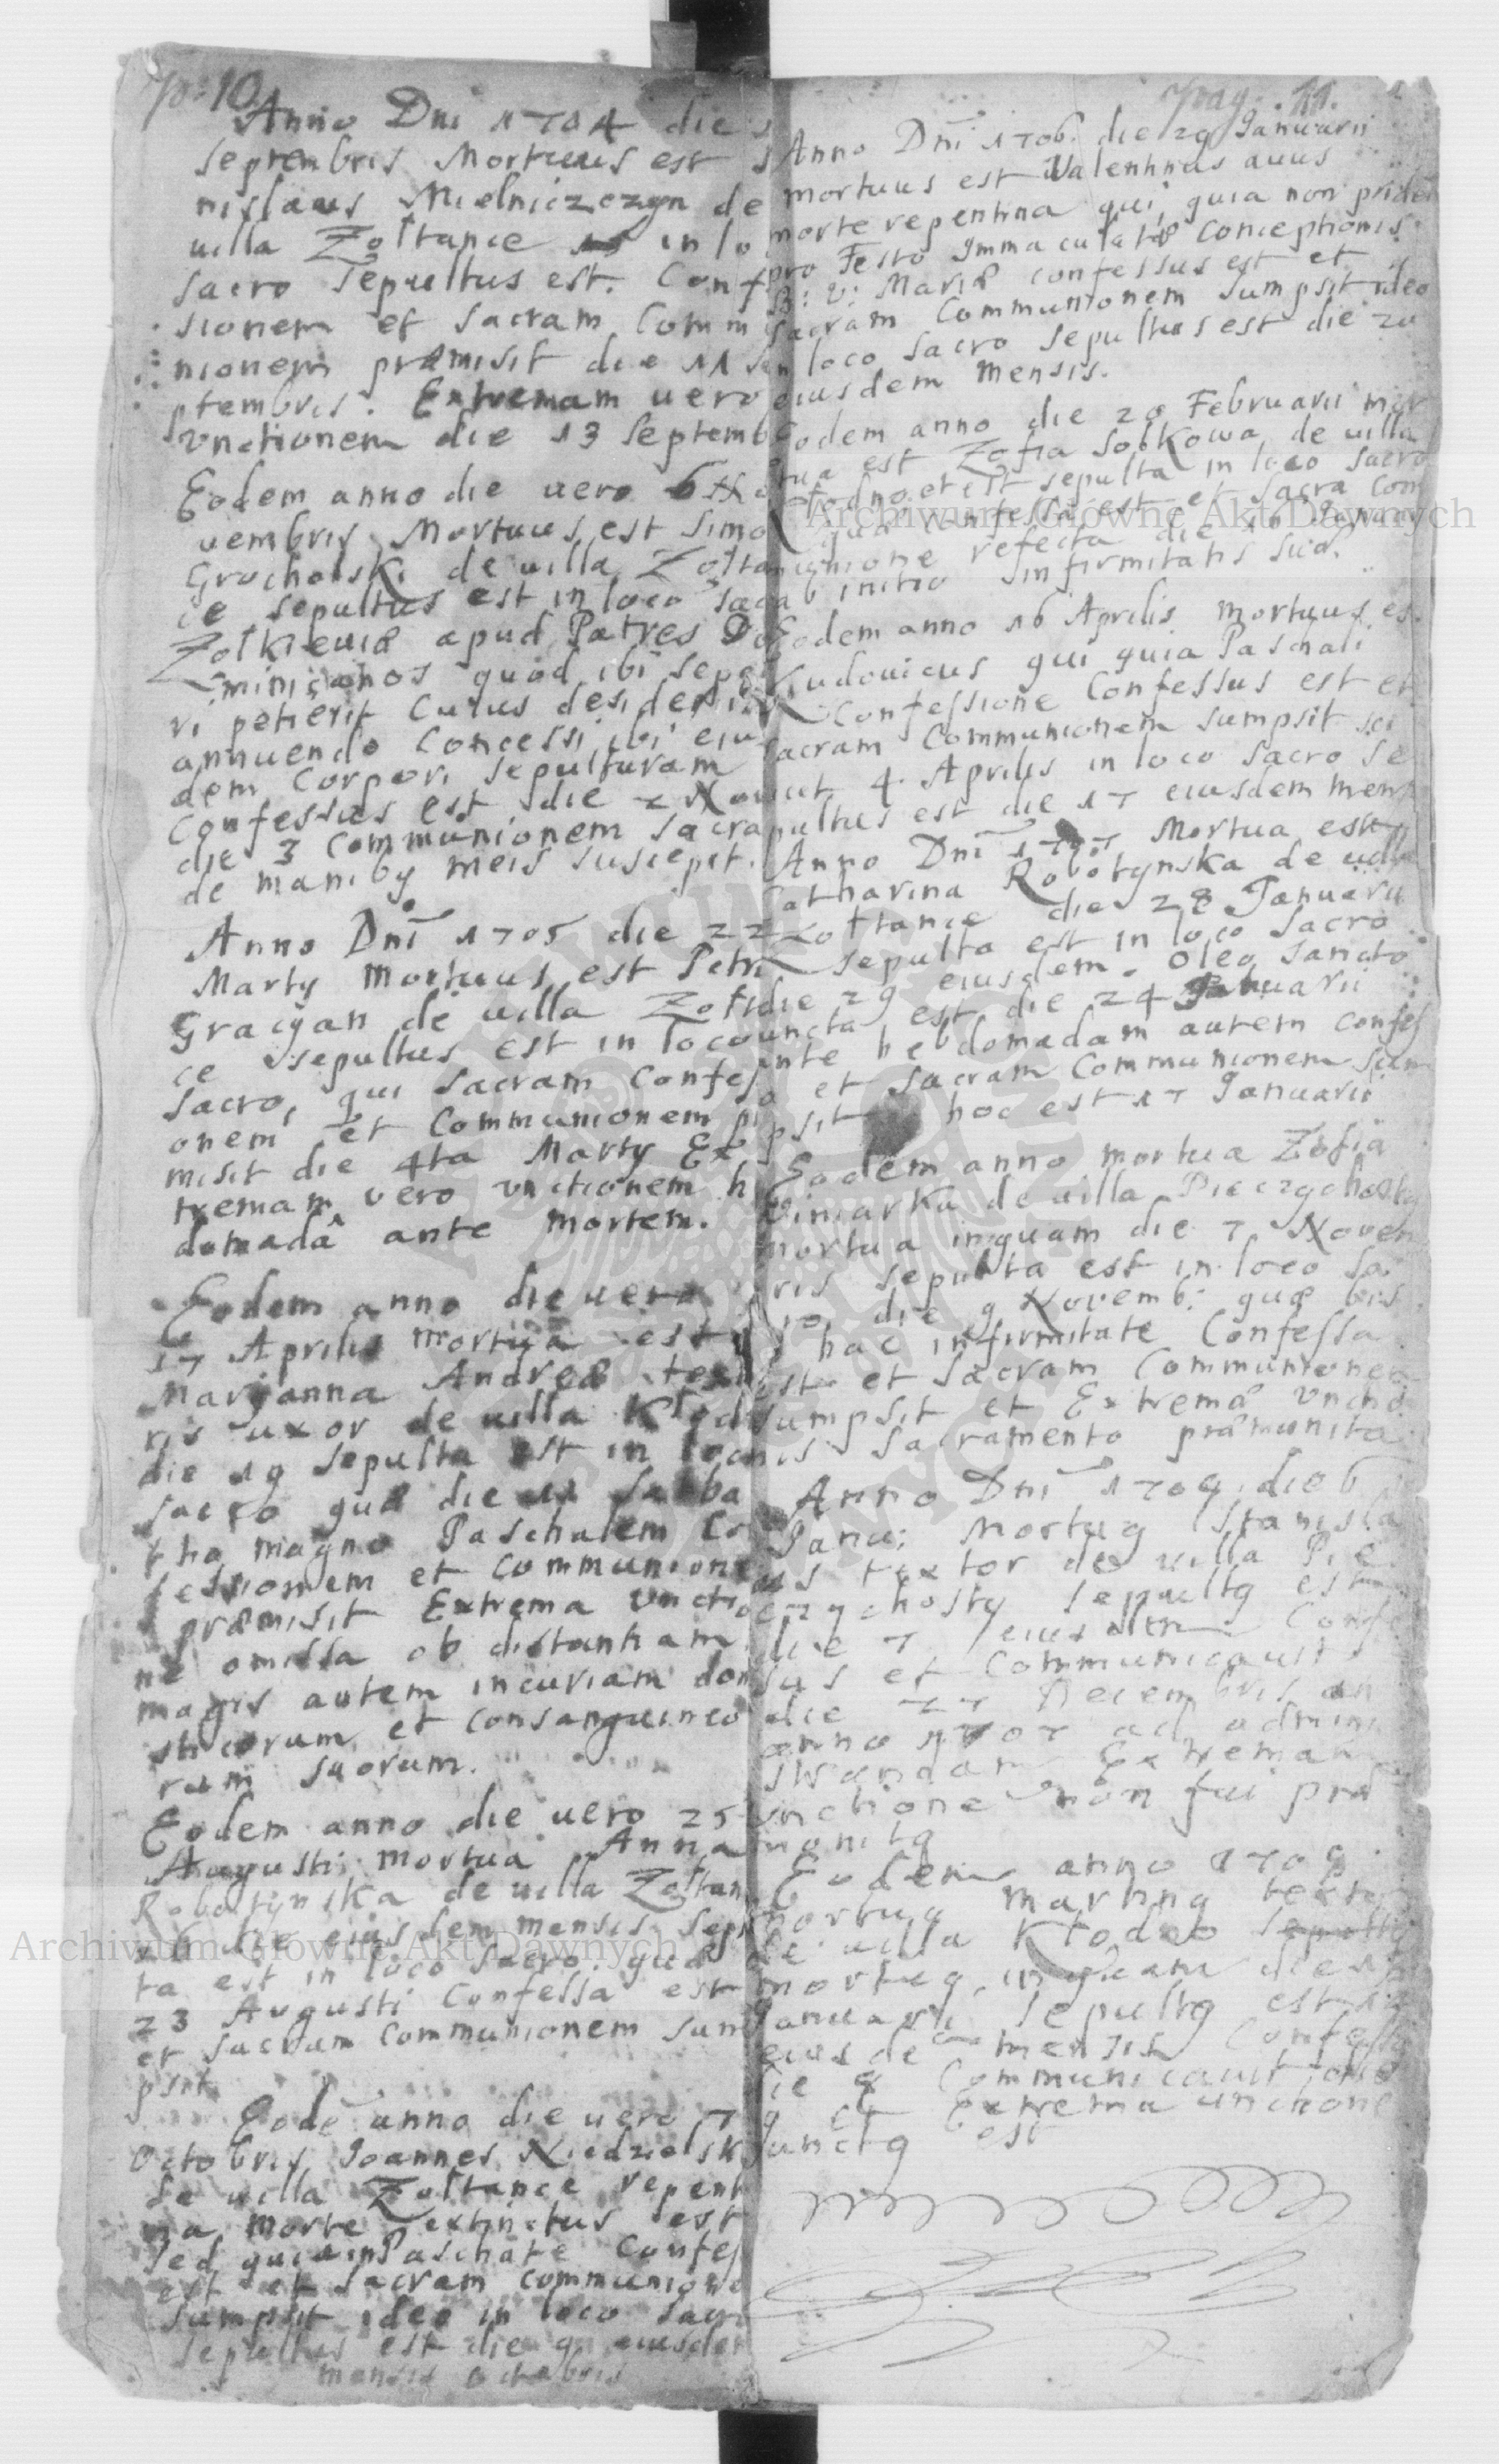 p: 10
Anno Dni 1704 die
Septembris Mortuus est S
nislaus Mielniczczyn de
uilla Zoltance in lo
sacro sepultus est. Conf
sionem et sacram Comm
nionem præmisit die 11 Se
ptembris. Extremam uero
Vnctionem die 13 Septemb
Eodem anno die uero 6
uembris Mortuus est Simo
Grocholski de uilla Zolta
ce sepultus est in loco sac
Zolkieuiæ apud Patres Do
minicanos quod ibi sepe
ri petierit Cuius desideri
annuendo Concessi ibi eius
dem Corpori sepulturam
Confessus est die 2 No
die 3 Communionem sacra
de maniby meis suscepit.
Anno Dni 1705 die 22
Marty mortuus est Petr
Gracyan de uilla Zolt
ce sepultus est in loco
sacro, qui sacram Confes
onem et Communionem p
misit die 4ta Marty Ex
tremam vero vnctionem h
domadâ ante mortem.
Eodem anno die uero
17 Aprilis mortua est
Maryanna Andreæ tex
ris uxor de uilla Klod
die 19 sepulta est in loco
sacro quæ die 11 Sabba
tho magno Paschalem Co
fessionem et Communione
præmisit Extrema Vnctio
ne omissa ob distantiam
magis autem incuriam dom
sticorum et consanguineo
rum suorum.
Eodem anno die uero 25
Augusti mortua Anna
Robotynska de uilla Zoltan
26 die eiusdem mensis sepu
ta est in loco sacro. quæ
23 Augusti Confessa est
et sacram Communionem sum
psit
Eodē anno die uero 7
Octobris Joannes Niedzielsk
de uilla Zoltance repent
na morte extinctus est
sed quia in Paschate Confes
est et sacram communione
sumpsit ideo in loco sacro
sepultus est die 9 eiusdem
mensis octobris
pag. 11.
Anno Dni 1706 die 29 Januarii
mortuus est Valentinus auus
morte repentina qui, quia non pridē
pro Festo Immaculatæ Conceptionis
B: V: Mariæ confessus est et
sacram Communionem sumpsit ideo
in loco sacro sepultus est die 20
eiusdem mensis.
Eodem anno die 20 Februarii mor
tua est Zofia Sobkowa de uilla
et est sepulta in loco sacro
quæ confessa est et sacra com
munione refecta die 16
ab initio infirmitatis suæ.
Eodem anno 16 Aprilis mortuus es
Ludouicus qui quia Paschali
Confessione Confessus est et
sacram Communionem sumpsit sci
licet 4. Aprilis in loco sacro se
pultus est die 17 eiusdem mens
Anno Dni 1707 Mortua est
Catharina Robotynska de uilla
Zoltance die 28 Januarii
sepulta est in loco sacro
die 29 eiusdem. Oleo sancto
uncta est die 24 Januarii
ante hebdomadam autem confes
sa et sacram Communionem sum
psit hoc est 17 Januarii
Eodem anno mortua Zofia
Viniarka de uilla Pieczychosty
mortua inquam die 7 Novem
ris sepulta est in loco sa
ro die 9 Novemb: quæ bis
hac infirmitate Confessa
est et sacram Communionem
sumpsit et Extremæ Vnctio
nis sacramento præmunita
Anno Dni 1709 die 6
Janu: Mortuq Stanisla
us textor de uilla Pie
czychosty sepultq est
die 7 eiusdem Confe
sus et Communicauit
die 27 Decembris an
anno 1707 ad admini
strandam Extremam
unctione non fui præ
monitq
Eodem anno 1709
mortuq Martinq textor
de uilla Klodno sepultq
mortuq inquam die 17
Januarii sepultq est 19
eiusdē mensis Confess
die 9 Communicauit
9 et Extrema unctione
iunctq est